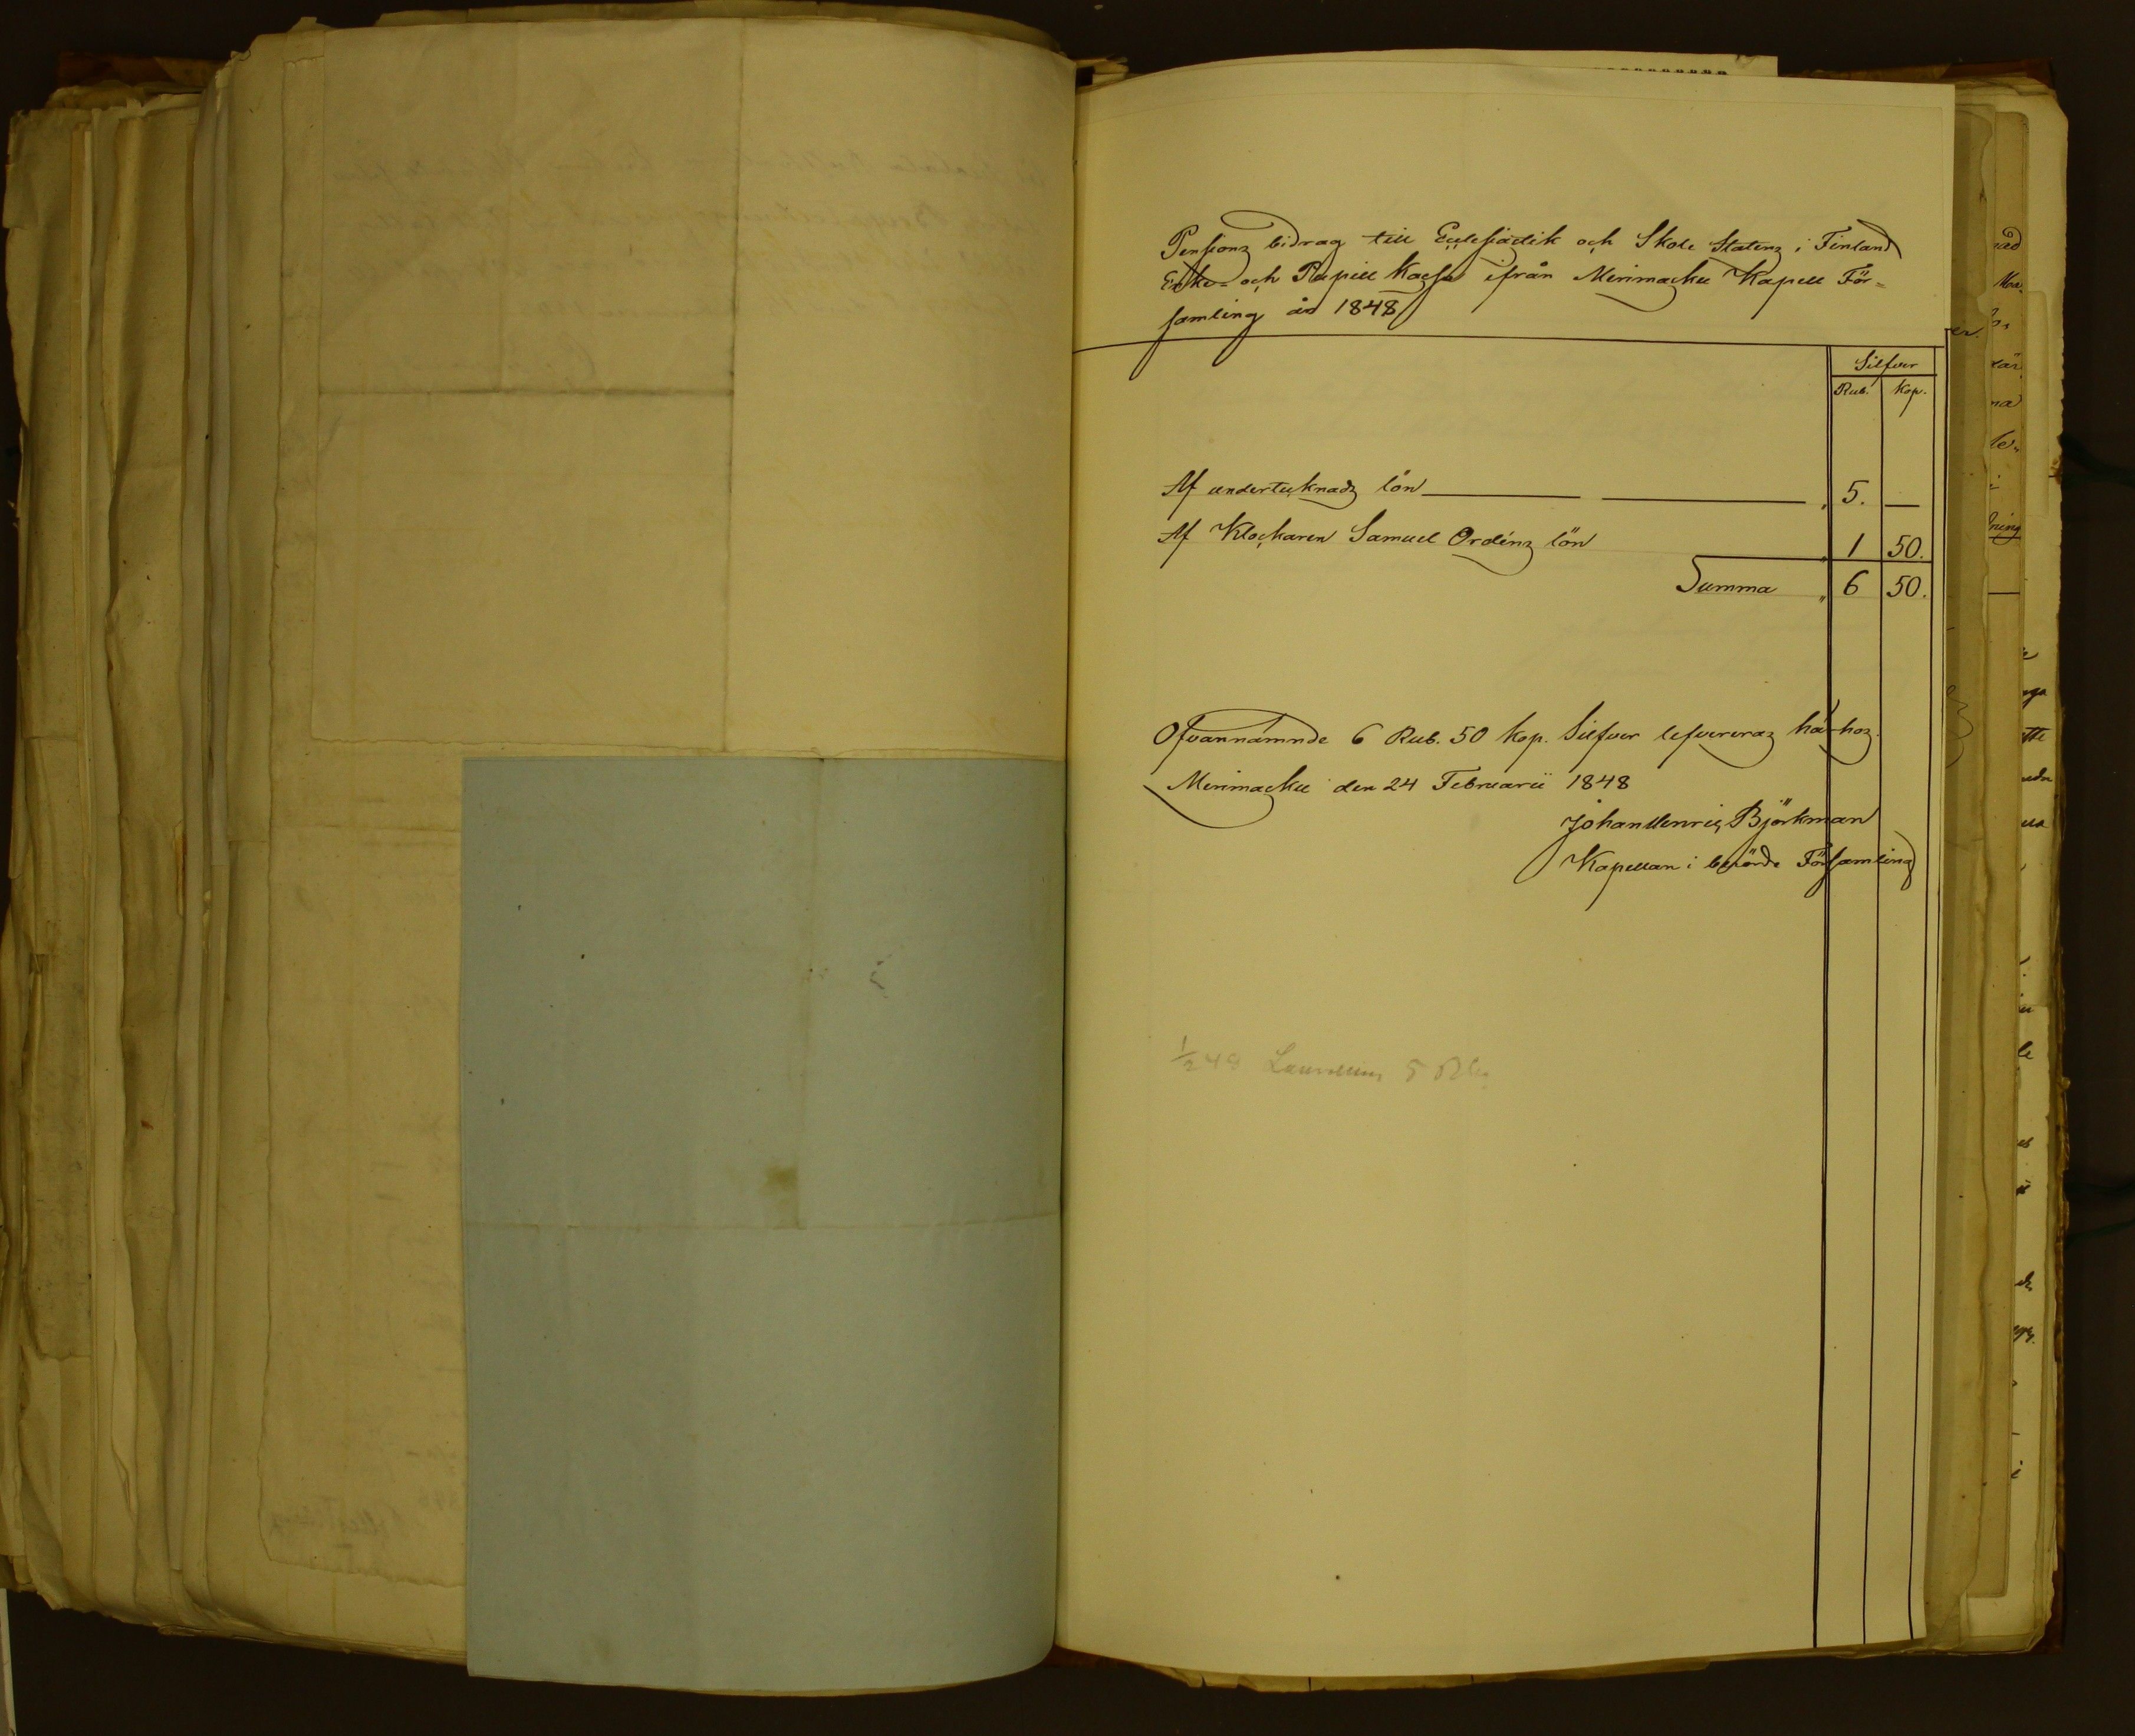 Pensions bidrag till Ecclesiastik och Skole Statens i Finland
Enke- och Pupill Kassa ifrån Merimasku Kapell För=
samling år 1848
Silfver
Rub. Kop.
Af undertecknads lön " 5. —
Af Klockaren Samuel Ordéns lön " 1 50.
Summa " 6 50.
Ofvannämnde 6 Rub. 50 Kop. Silfver lefvereras härhos.
Merimasku den 24 Februarii 1848
Johan Henric Björkman
Kapellan i berörde Församling
48 5